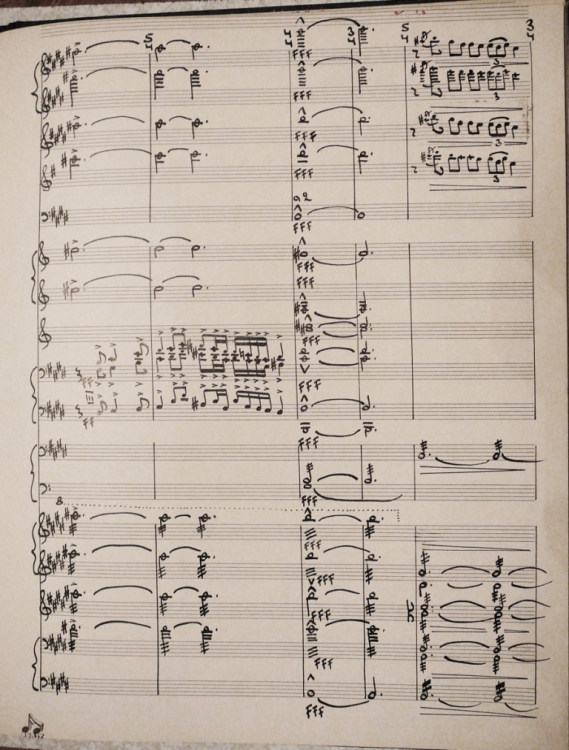 5/4 4/4 3/4 5/4 3/4
FFF
3
FFF
3
FFF
3
FFF
3
a2
FFF
FFF
FFF
FFF
FF
FFF
FF
FFF
FFF
8
FFF
FFF
FFF
FFF
FFF